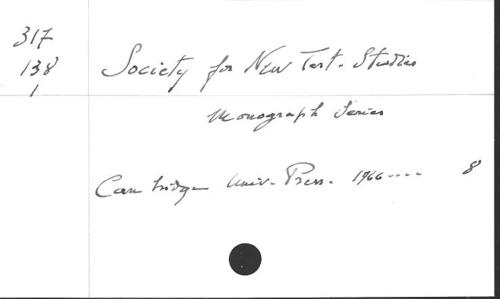 317
138
1
Society for New Test. Studies
Monograph Series
Cambridge Univ. Press. 1966.... 8